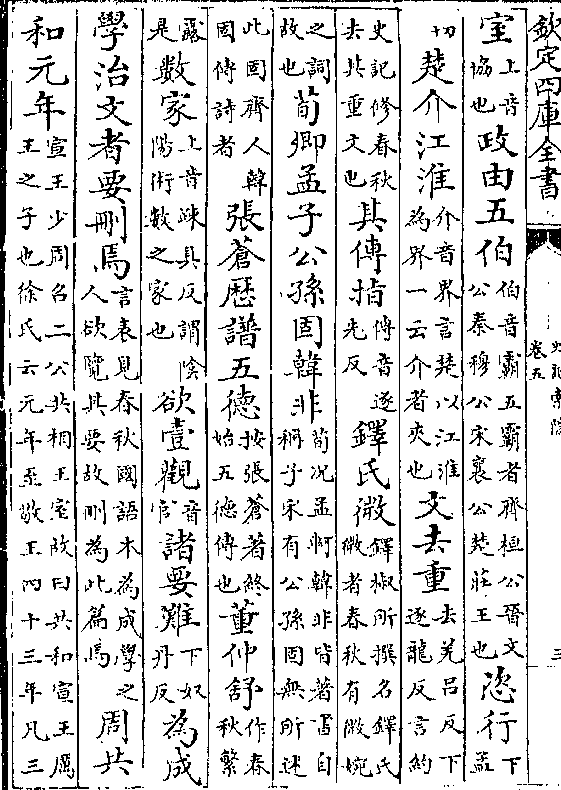 欽定四庫全書
史記索隱
卷五
三
室上音協也政由五伯伯音霸五霸者齊桓公晉文公秦穆公宋襄公楚莊王也恣行下孟
切楚介江淮介音界言楚以江淮為界一云介者夾也文去重去羌呂反下逐龍反言約
史記修春秋去其重文也其傳指傳音逐先反鐸氏微鐸椒所撰名鐸氏微者春秋有微婉
之詞故也荀卿孟子公孫固韓非荀況孟軻韓非皆著書自稱子宋有公孫固無所述
此固齊人韓固傳詩者張蒼歷譜五德按張蒼著終始五德傳也董仲舒作春秋繁
露是數家上音疎具反謂陰陽術數之家也欲壹觀音官諸要難下奴丹反為成
學治文者要刪焉言表見春秋國語本為成學之人欲覽其要故刪為此篇焉周共
和元年宣王少周召二公共相王室故曰共和宣王厲王之子也徐氏云元年至敬王四十三年凡三